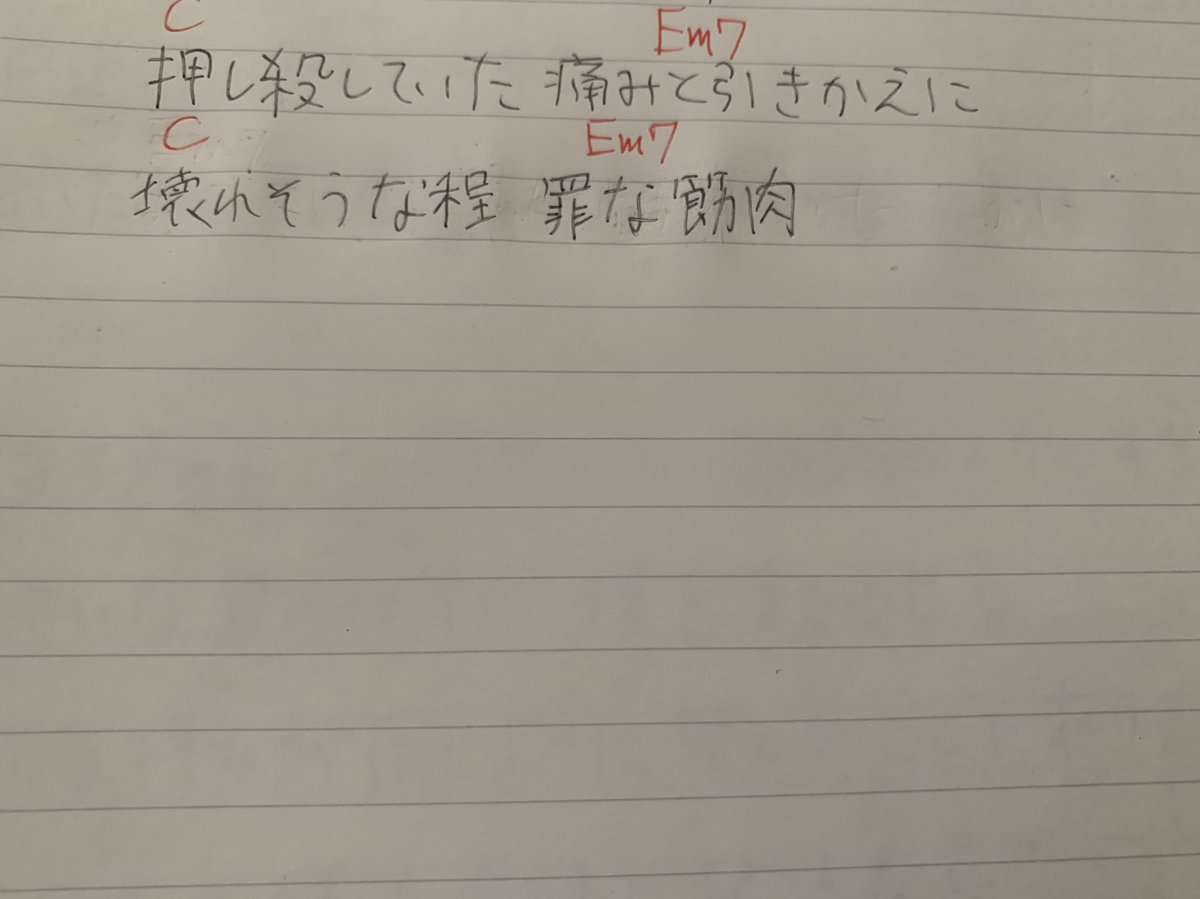 C Em7
押し殺していた 痛みと引きかえに
C Em7
壊れそうな程 罪な筋肉